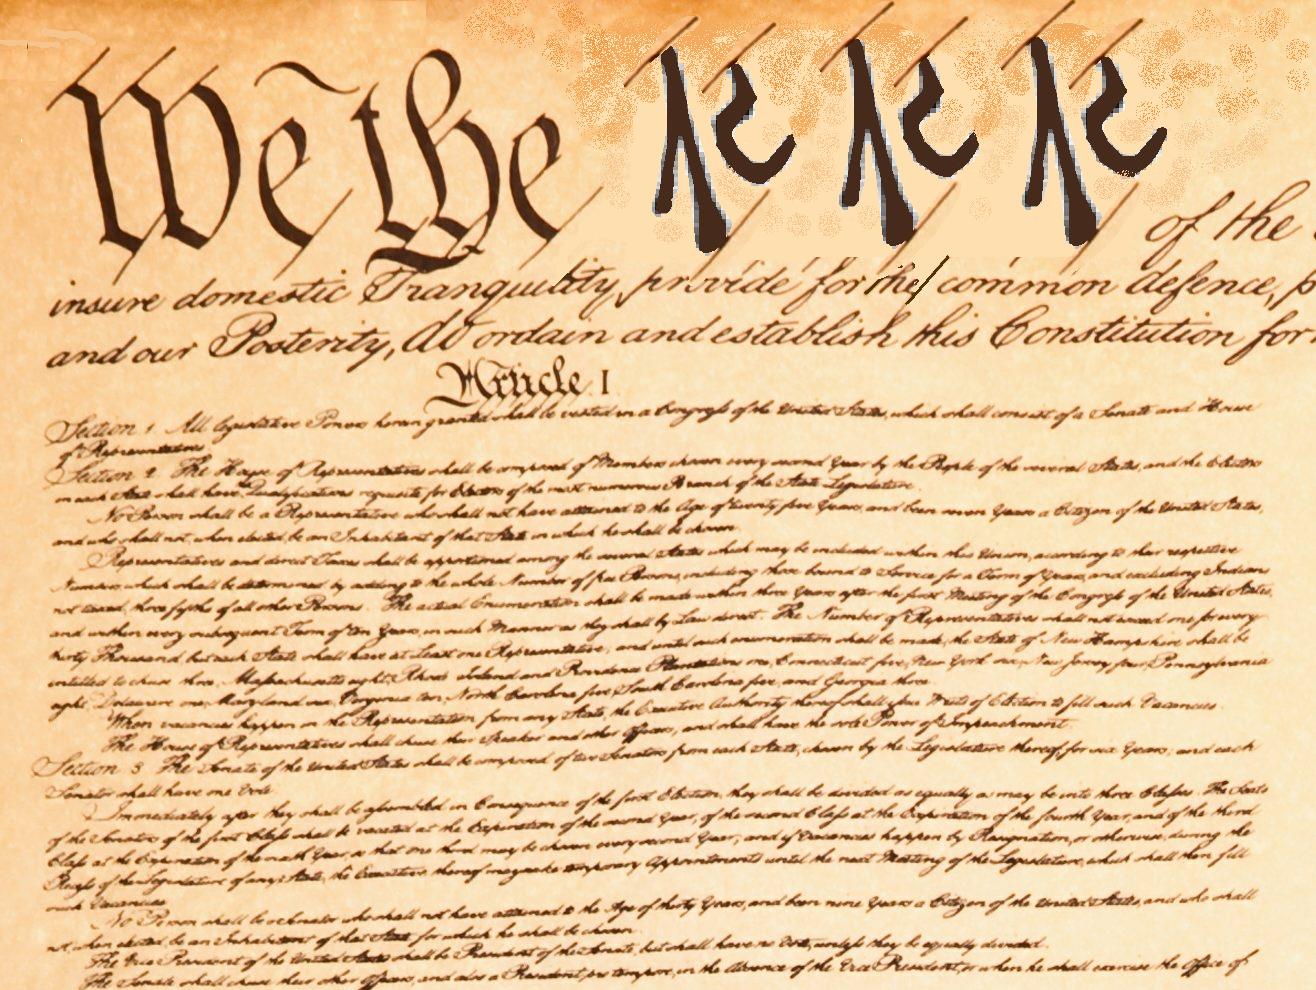 We the of the
insure domestic Tranquility, provide for the common defence, p
and our Posterity, do ordain and establish this Constitution for
Article I
Section 1 All legislative Powers herein granted shall be vested in a Congress of the United States, which shall consist of a Senate and House
of Representatives
Section 2 The House of Representatives shall be composed of Members chosen every second Year by the People of the several States, and the Electors
in each State shall have Qualifications requisite for Electors of the most numerous Branch of the State Legislature.
No Person shall be a Representative who shall not have attained to the Age of twenty five Years, and been seven Years a Citizen of the United States,
and who shall not, when elected, be an Inhabitant of that State in which he shall be chosen.
Representatives and direct Taxes shall be apportioned among the several States which may be included within this Union, according to their respective
Numbers, which shall be determined by adding to the whole Number of free Persons, including those bound to Service for a Term of Years, and excluding Indians
not taxed, three fifths of all other Persons. The actual Enumeration shall be made within three Years after the first Meeting of the Congress of the United States,
and within every subsequent Term of ten Years, in such Manner as they shall by Law direct. The Number of Representatives shall not exceed one for every
thirty Thousand, but each State shall have at Least one Representative; and until such enumeration shall be made, the State of New Hampshire shall be
entitled to chuse three, Massachusetts eight, Rhode Island and Providence Plantations one, Connecticut five, New York six, New Jersey four, Pennsylvania
eight, Delaware one, Maryland six, Virginia ten, North Carolina five, South Carolina five, and Georgia three.
When vacancies happen in the Representation from any State, the Executive Authority thereof shall issue Writs of Election to fill such Vacancies.
The House of Representatives shall chuse their Speaker and other Officers; and shall have the sole Power of Impeachment.
Section 3 The Senate of the United States shall be composed of two Senators from each State, chosen by the Legislature thereof, for six Years; and each
Senator shall have one Vote.
Immediately after they shall be assembled in Consequence of the first Election, they shall be divided as equally as may be into three Classes. The Seats
of the Senators of the first Class shall be vacated at the Expiration of the second Year, of the second Class at the Expiration of the fourth Year, and of the third
Class at the Expiration of the sixth Year, so that one third may be chosen every second Year; and if Vacancies happen by Resignation, or otherwise, during the
Recess of the Legislature of any State, the Executive thereof may make temporary Appointments until the next Meeting of the Legislature, which shall then fill
such Vacancies.
No Person shall be a Senator who shall not have attained to the Age of thirty Years, and been nine Years a Citizen of the United States, and who shall
not, when elected, be an Inhabitant of that State for which he shall be chosen.
The Vice President of the United States shall be President of the Senate, but shall have no Vote, unless they be equally divided.
The Senate shall chuse their other Officers, and also a President pro tempore, in the Absence of the Vice President, or when he shall exercise the Office of